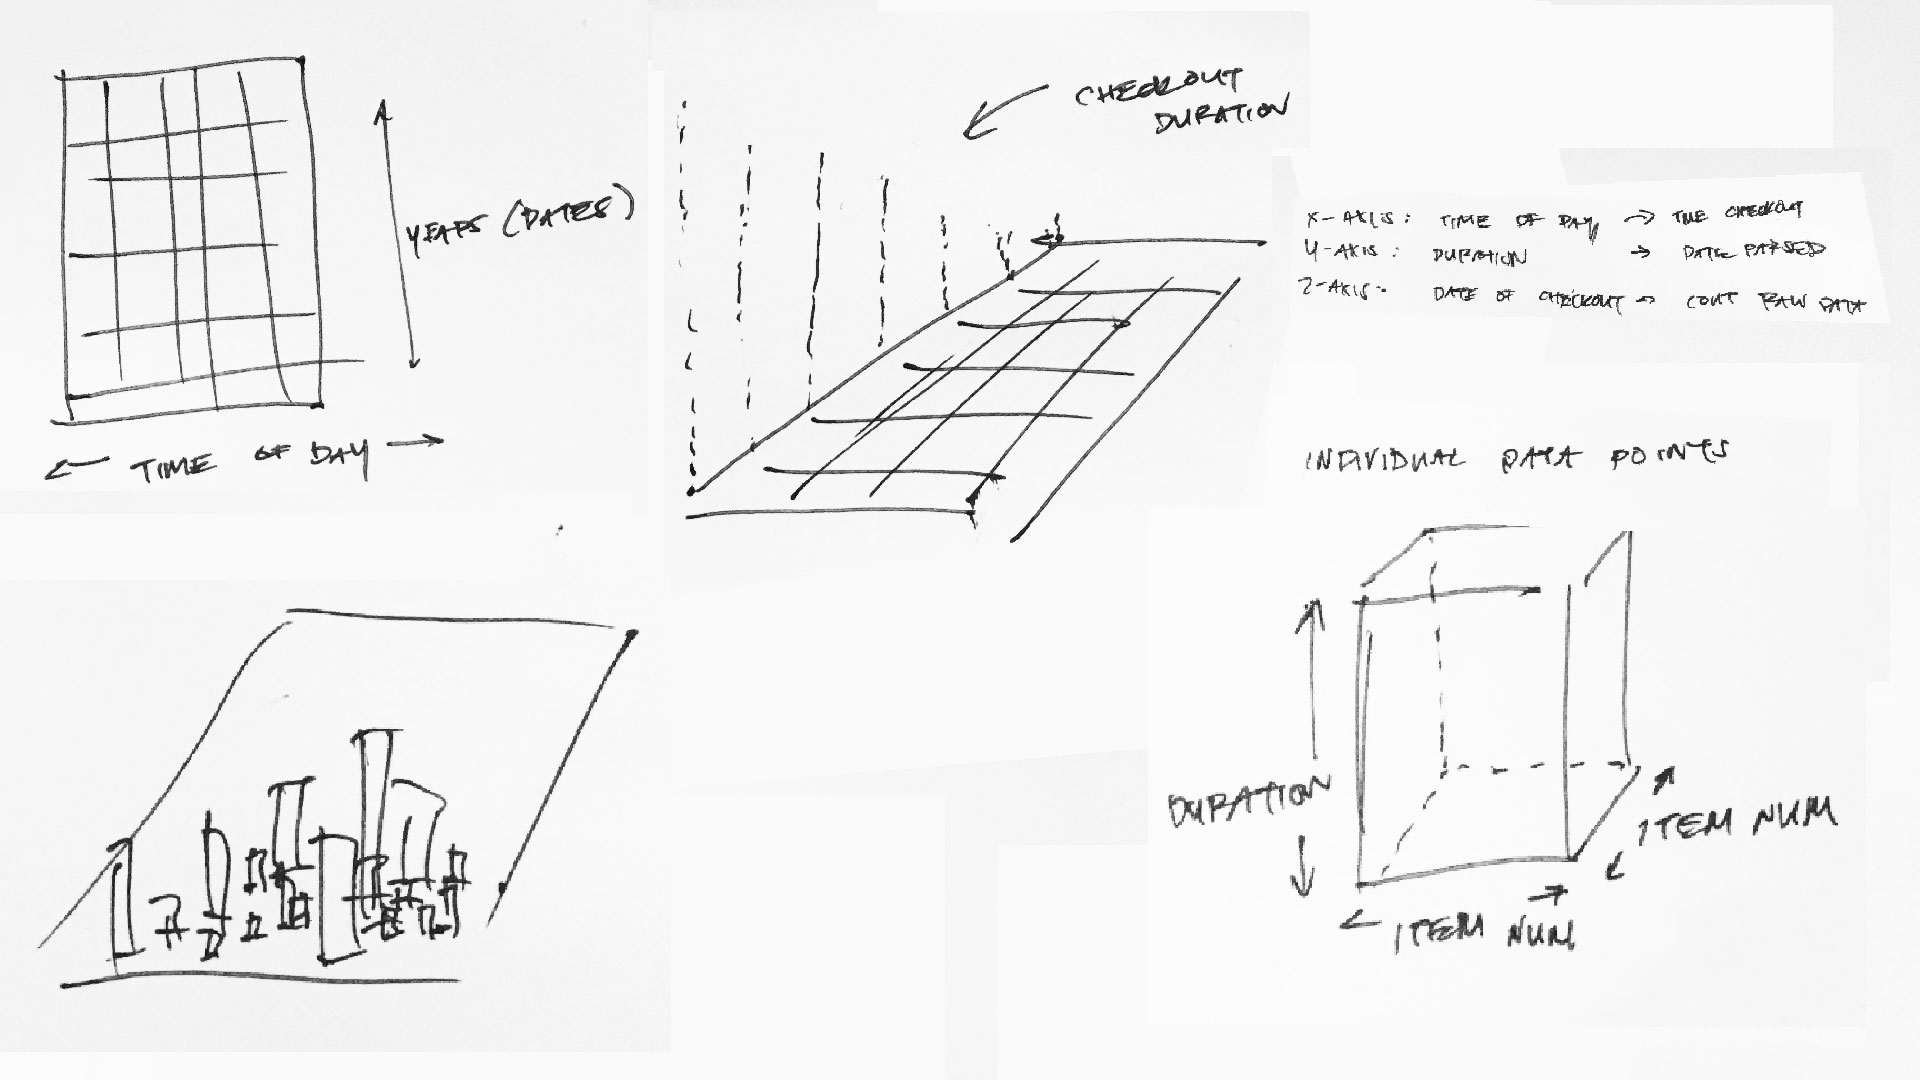 YEARS (DATES)
← TIME OF DAY →
CHECKOUT
DURATION
X-AXIS: TIME OF DAY → TIME CHECKOUT
Y-AXIS: DURATION → DATE PARSED
Z-AXIS- DATE OF CHECKOUT → RAW DATA
INDIVIDUAL DATA POINTS
DURATION
ITEM NUM
ITEM NUM